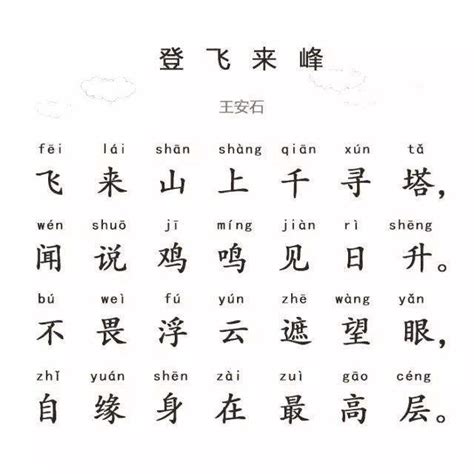 登飞来峰
王安石
fēi lái shān shàng qiān xún tǎ
飞来山上千寻塔，
wén shuō jī míng jiàn rì shēng
闻说鸡鸣见日升。
bú weì fú yún zhē wàng yǎn
不畏浮云遮望眼，
zhǐ yuán shēn zài zuì gāo céng
自缘身在最高层。